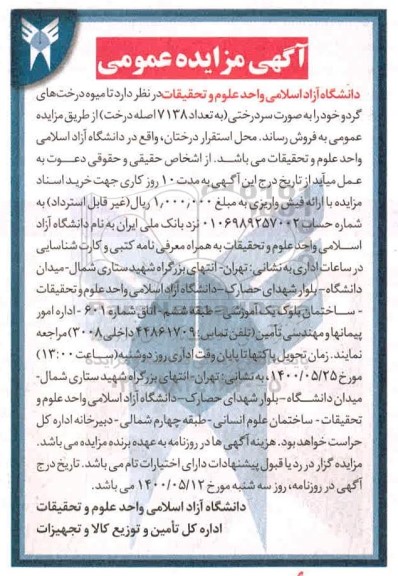 آگهی مزایده عمومی
دانشگاه آزاد اسلامی واحد علوم و تحقیقات در نظر دارد تا میوه درخت‌های
گردو خود را به صورت سردرختی (به تعداد ۷۱۳۸ اصله درخت) از طریق مزایده
عمومی به فروش رساند. محل استقرار درختان، واقع در دانشگاه آزاد اسلامی
واحد علوم و تحقیقات می باشد. از اشخاص حقیقی و حقوقی دعوت به
عمل میآید از تاریخ درج این آگهی به مدت ۱۰ روز کاری جهت خرید اسناد
مزایده با ارائه فیش واریزی به مبلغ ۱,۰۰۰,۰۰۰ ریال (غیر قابل استرداد) به
شماره حساب ۰۱۰۶۹۸۹۲۵۷۰۰۲ نزد بانک ملی ایران به نام دانشگاه آزاد
اسلامی واحد علوم و تحقیقات به همراه معرفی نامه کتبی و کارت شناسایی
در ساعات اداری به نشانی: تهران- انتهای بزرگراه شهید ستاری شمال- میدان
دانشگاه – بلوار شهدای حصارک – دانشگاه آزاد اسلامی واحد علوم و تحقیقات
- ساختمان بلوک یک آموزشی – طبقه ششم – اتاق شماره ۶۰۱ - اداره امور
پیمانها و مهندسی تأمین (تلفن تماس: ۴۴۸۶۱۷۰۹ داخلی ۳۰۰۸) مراجعه
نمایند. زمان تحویل پاکتها تا پایان وقت اداری روز دوشنبه (ساعت ۱۳:۰۰)
مورخ ۱۴۰۰/۰۵/۲۵، به نشانی: تهران- انتهای بزرگراه شهید ستاری شمال-
میدان دانشگاه – بلوار شهدای حصارک – دانشگاه آزاد اسلامی واحد علوم و
تحقیقات - ساختمان علوم انسانی - طبقه چهارم شمالی - دبیرخانه اداره کل
حراست خواهد بود. هزینه آگهی ها در روزنامه به عهده برنده مزایده می باشد.
مزایده گزار در رد یا قبول پیشنهادات دارای اختیارات تام می باشد. تاریخ درج
آگهی در روزنامه، روز سه شنبه مورخ ۱۴۰۰/۰۵/۱۲ می باشد.
دانشگاه آزاد اسلامی واحد علوم و تحقیقات
اداره کل تأمین و توزیع کالا و تجهیزات